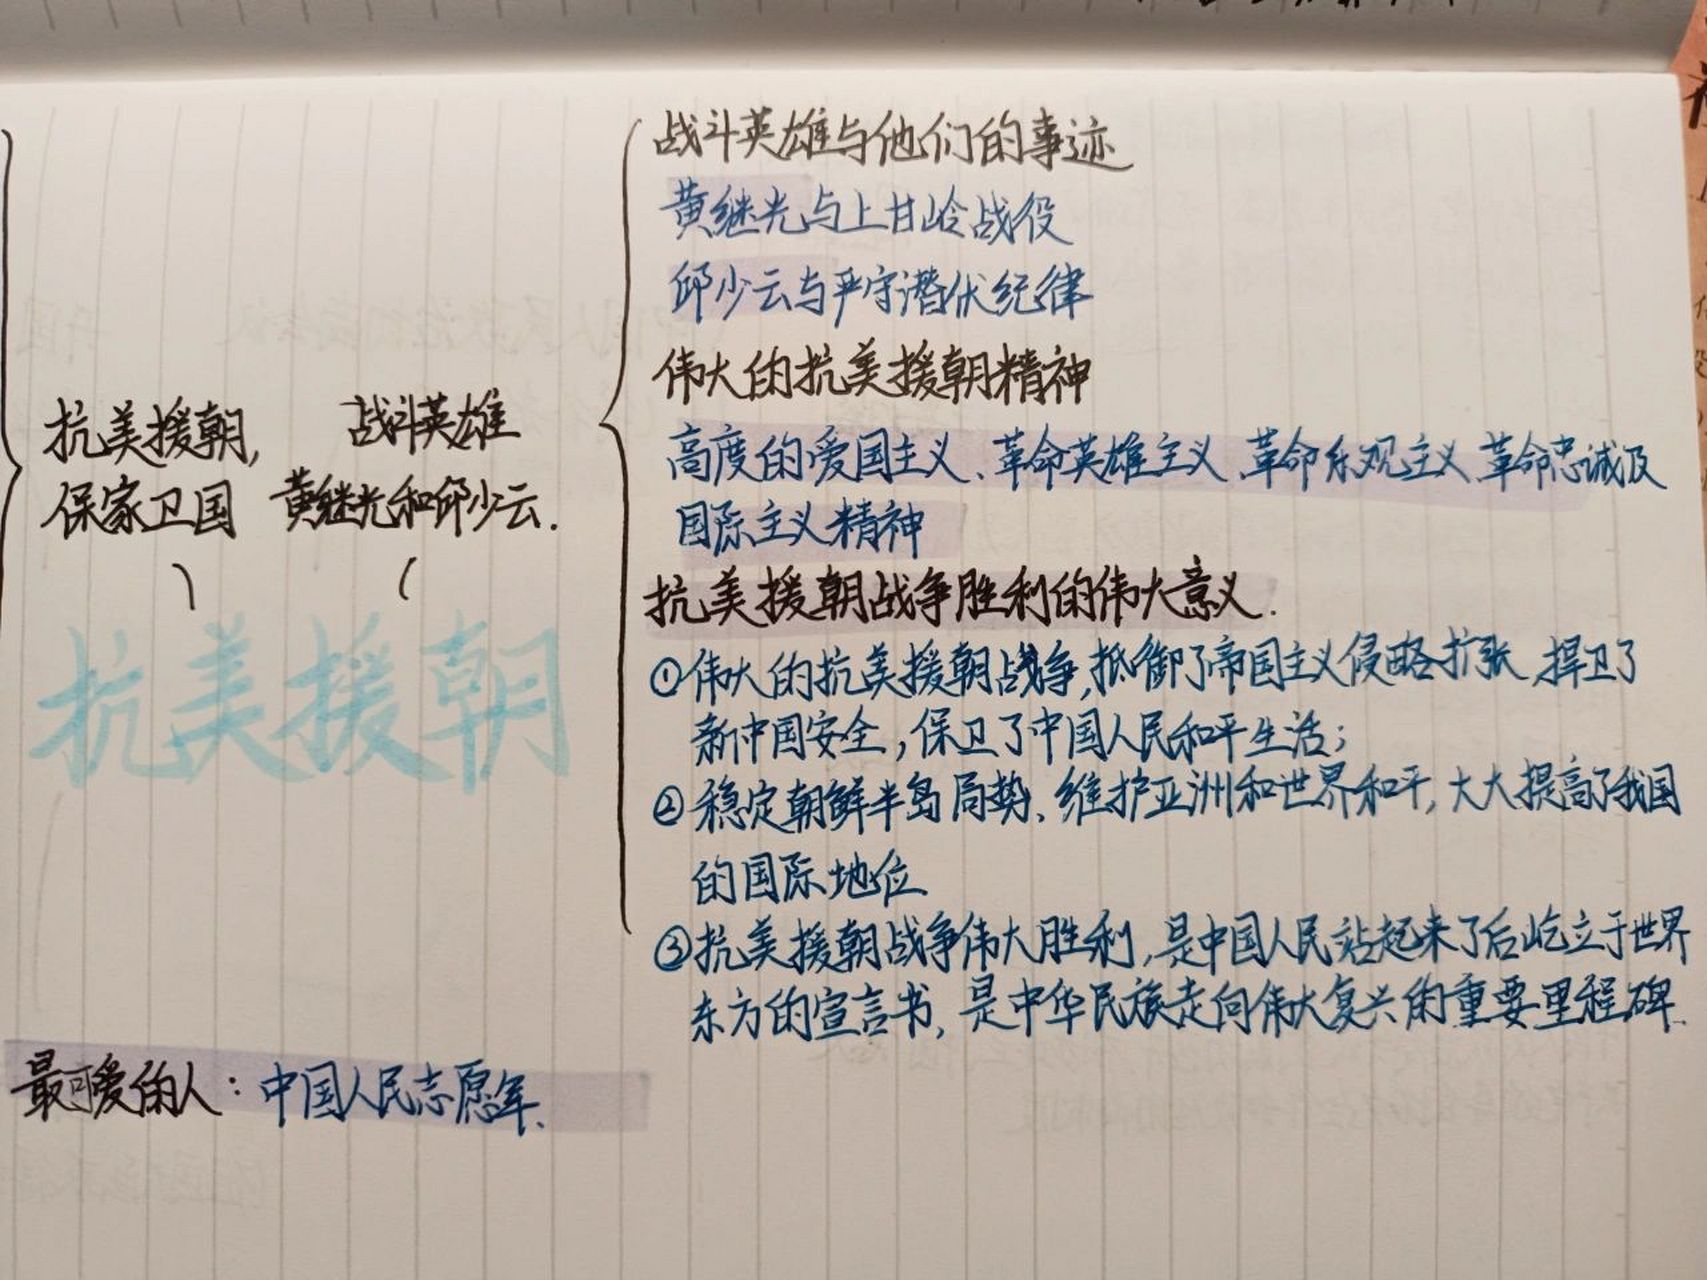 战斗英雄与他们的事迹
黄继光与上甘岭战役
邱少云与严守潜伏纪律
伟大的抗美援朝精神
高度的爱国主义、革命英雄主义、革命乐观主义、革命忠诚及
国际主义精神
抗美援朝战争胜利的伟大意义.
①伟大的抗美援朝战争,抵御了帝国主义侵略扩张,捍卫了
新中国安全,保卫了中国人民和平生活;
②稳定朝鲜半岛局势、维护亚洲和世界和平,大大提高了我国
的国际地位
③抗美援朝战争伟大胜利,是中国人民站起来了后屹立于世界
东方的宣言书,是中华民族走向伟大复兴的重要里程碑.
抗美援朝,
保家卫国
战斗英雄
黄继光和邱少云.
抗美援朝
最可爱的人:中国人民志愿军.